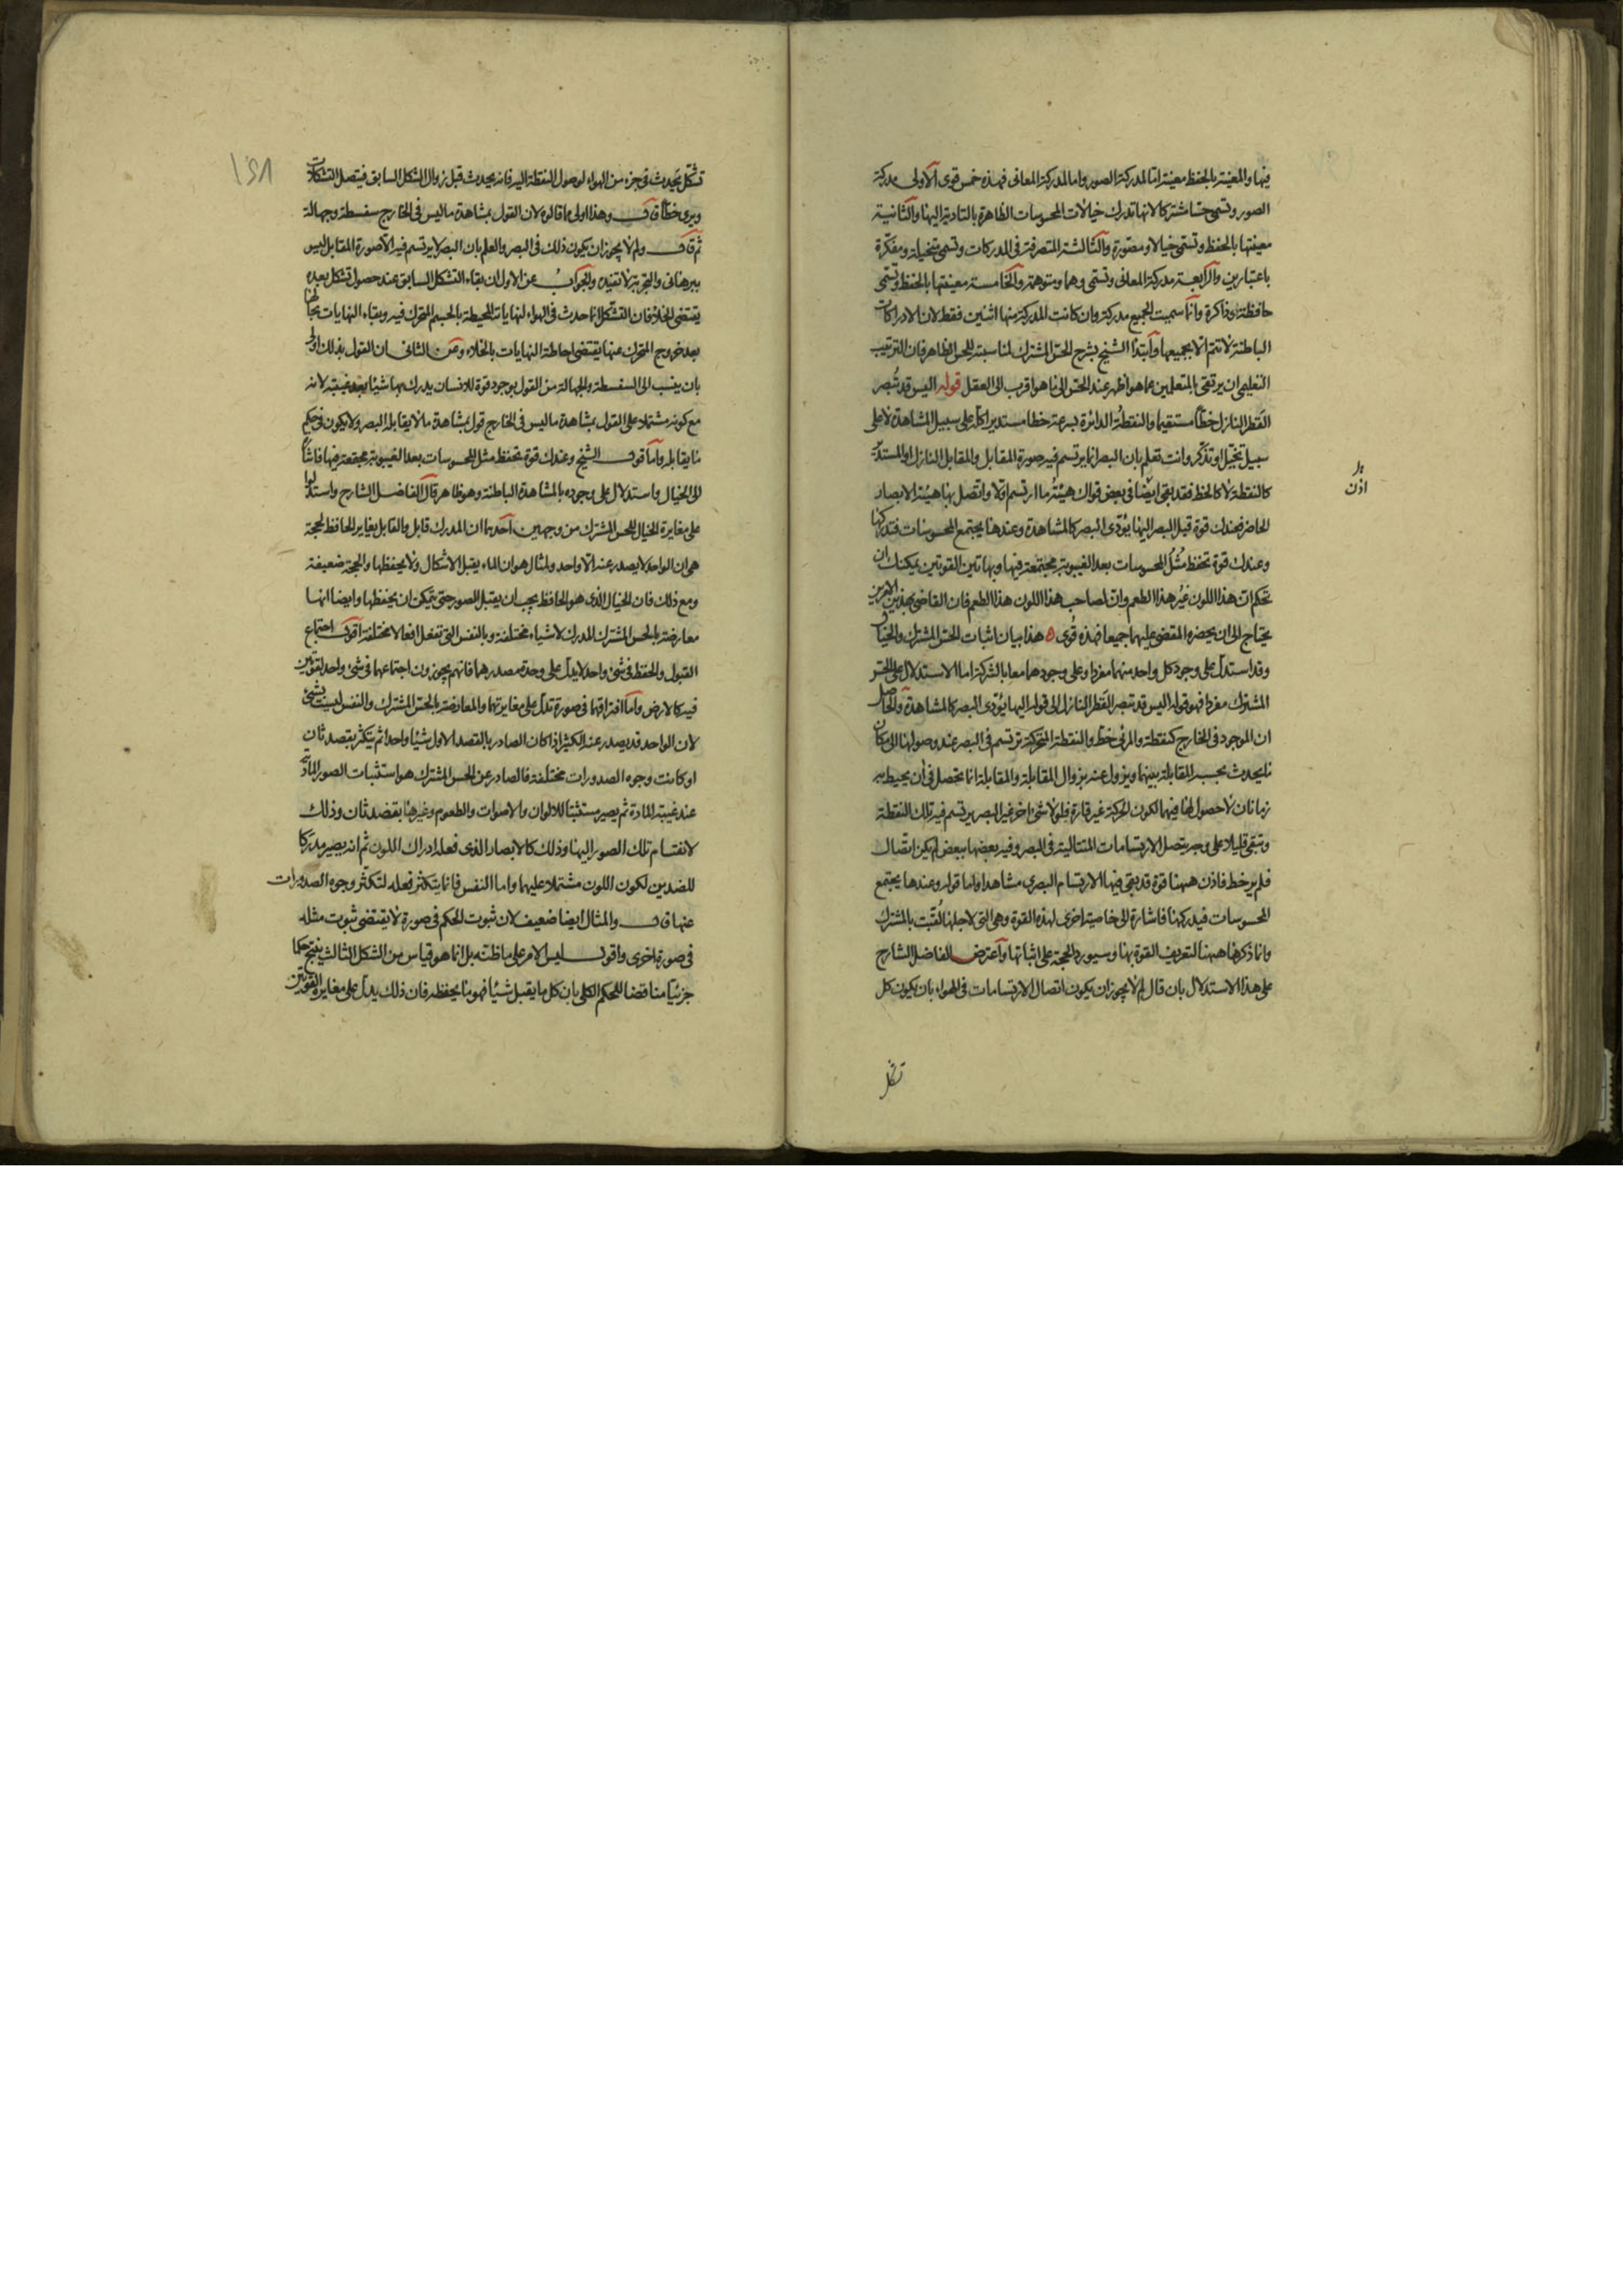 فيها والمعينة بالحفظ معينة اما لمدركة الصور واما لمدركة المعانى فهذه خمس قوى الاولى مدركة
الصور وتسمى حسا مشتركا لانها تدرك خيالات المحسوسات الظاهرة بالتادية اليها والثانية
معينتها بالحفظ وتسمى خيالا ومصورة والثالثة المتصرفة فى المدركات وتسمى متخيلة ومفكرة
باعتبارين والرابعة مدركة المعانى وتسمى وهما ومتوهمة والخامسة معينتها بالحفظ وتسمى
حافظة وذاكرة وانما سميت الجميع مدركة وان كانت المدركة منها اثنين فقط لان الادراكات
الباطنة لا تتم الا بجميعها وابتدا الشيخ بشرح الحس المشترك لمناسبته للحس الظاهر فان الترتيب
التعليمى ان يرتقى بالمتعلمين عما هو اظهر عند الحس الى ما هو اقرب الى العقل قوله اليس قد تُبصر
القَطر النازل خطّاً مستقيما والنقطةُ الدائرة بسرعة خطا مستديرا كله على سبيل المشاهدة لا على
سبيل تخيل او تذكر وانت تعلم بان البصر انما يرتسم فيه صورة المقابل والمقابل النازل او المستدير
كالنقطة لا كالخط فقد بقى ايضا فى بعض قواك هيئةُ ما ارتسم اولا واتصل بها هيئة الابصار
الحاضر فعندك قوة قبل البصر اليها يؤدى البصر كالمشاهدة وعندها يجتمع المحسوسات فتدركها
وعندك قوة تحفظ مُثُل المحسوسات بعد الغيبوبة مجتمعة فيها وبهاتين القوتين يمكنك ان
تحكم ان هذا اللون غيُر هذا الطعم وان لصاحب هذا اللون هذا الطعم فان القاضى بهذين الامرين
يحتاج الى ان يحضره المقضى عليهما جميعا فهذه قُوى ه هذا بيان اثبات الحس المشترك والخيال
وقد استدل على وجود كل واحد منهما مفردا وعلى وجودهما معا بالشركة اما الاستدلال على الحس
المشترك مفردا فهو قوله اليس قد تبصر القَطر النازل الى قوله اليها يؤدى البصر كالمشاهدة والحاصل
ان الموجود فى الخارج كنقطة والمرئى خط والنقطة المتحركة ترتسم فى البصر عند وصولها الى مكان
ما يحدث بحسبه المقابلة بينهما ويزول عنه بزوال المقابلة والمقابلة انما تحصل فى آن يحيط به
زمانان لا حصول لها فيهما لكون الحركة غير قارة فلولا شئ اخر غير البصر يرتسم فيه تلك النقطة
وتبقى قليلا على وجه يتصل الارتسامات المتتالية فى البصر وفيه بعضها ببعض لم يكن اتصال
فلم ير خط فاذن ههنا قوة قد بقى فيها الارتسام البصرى مشاهدا واما قوله وعندها يجتمع
المحسوسات فيدركها فاشارة الى خاصية اخرى لهذه القوة وهى التى لاجلها لُقّبت بالمشترك
وانما ذكرها ههنا لتعريف القوة بها وسيورد الحجة على اثباتها واعترض الفاضل الشارح
على هذا الاستدلال بان قال لم لا يجوز ان يكون اتصال الارتسامات فى الهواء بان يكون كل
اذن
تشكل
١٥٨
تشكّل يحدث فى جزء من الهواء لوصول النقطة اليه فانه يحدث قبل زوال الشكل السابق فيتصل التشكلات
ويرى خطا قال وهذا اولى ما قالوه لان القول بمشاهدة ما ليس فى الخارج سفسطة وجهالة
ثم قال ولم لا يجوز ان يكون ذلك فى البصر والعلم بان البصر لا يرتسم فيه الا صورة المقابل ليس
ببرهانى والتجربة لا تفيده والجواب عن الاول ان بقاء التشكل السابق عند حصول تشكل بعده
يقتضى الخلاء فان التشكل انما حدث فى الهواء لنهاياته المحيطة بالجسم المتحرك فيه وبقاء النهايات بحالها
بعد خروج المتحرك عنها يقتضى احاطة النهايات بالخلاء وعن الثانى ان القول بذلك اولى
بان ينسب الى السفسطة والجهالة من القول بوجود قوة للانسان يدرك بها شيئا بعد غيبته لانه
مع كونه مشتملا على القول بمشاهدة ما ليس فى الخارج قول بمشاهدة ما لا يقابله البصر ولا يكون فى حكم
ما يقابله واما قول الشيخ وعندك قوة تحفظ مثل المحسوسات بعد الغيبوبة مجتمعة فيها فاشارة
الى الخيال واستدلال على وجوده بالمشاهدة الباطنة وهو ظاهر قال الفاضل الشارح واستدلوا
على مغايرة الخيال للحس المشترك من وجهين احدهما ان المدرك قابل والقابل يغاير الحافظ لحجة
هى ان الواحد لا يصدر عنه الا واحد ولمثال هو ان الماء يقبل الاشكال ولا يحفظها والحجة ضعيفة
ومع ذلك فان الخيال الذى هو الحافظ يجب ان يقبل الصور حتى يتمكن ان يحفظها وايضا انها
معارضة بالحس المشترك المدرك لاشياء مختلفة وبالنفس التى تفعل افعالا مختلفة اقول اجتماع
القبول والحفظ فى شئ واحد لا يدل على وحدة مصدرهما فانهم يجوزون اجتماعهما فى شئ واحد لقوتين
فيه كالارض واما افتراقهما فى صورة تدل على مغايرتهما والمعارضة بالحس المشترك والنفس ليست بشئ
لان الواحد قد يصدر عنه الكثير اذا كان الصادر بالقصد الاول شيئا واحدا ثم يتكثر بقصد ثان
او كانت وجوه الصدورات مختلفة فالصادر عن الحس المشترك هو استثبات الصور المادية
عند غيبة المادة ثم يصير مستثبتا للالوان والاصوات والطعوم وغيرها بقصد ثان وذلك
لانقسام تلك الصور اليها وذلك كالابصار الذى فعله ادراك اللون ثم انه يصير مدركا
للضدين لكون اللون مشتملا عليهما واما النفس فانما يتكثر فعله لتكثر وجوه الصدورات
عنها قال والمثال ايضا ضعيف لان ثبوت الحكم فى صورة لا يقتضى ثبوت مثله
فى صورة اخرى واقول ليس الامر على ما ظنه بل انما هو قياس من الشكل الثالث ينتج حكما
جزئيا مناقضا للحكم الكلى بان كل ما يقبل شيئا فهو ما يحفظه فان ذلك يدل على مغايرة القوتين